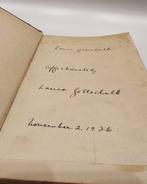 Laura Gottschalk
Affectionately
Laura Gottschalk
November 2, 1926